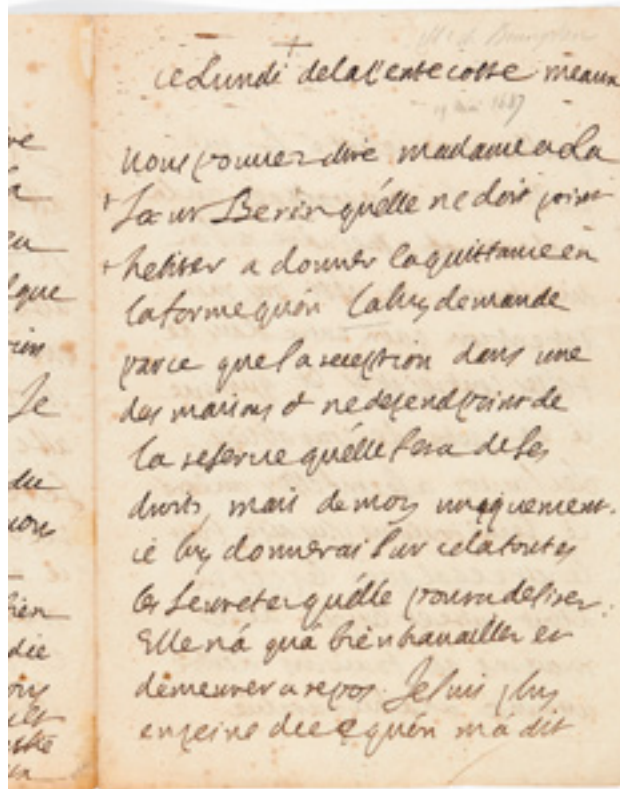 ce Lundi de la Pentecoste meaux
19 mai 1687
Vous pouuez dire madame a La
Sœur Berin quélle ne doit point
hesiter a donner la quittance en
la forme quón La luy demande
parce que sa reception dans une
des maisons ne depend point de
la reserue quélle fera de ses
droits, mais de moy uniquement.
ie luy donnerai sur cela toutes
les seuretez quélle poura desirer.
Elle ná quá bien trauailler et
demeurer a repos. Je suis plus
en peine de ce quón má dit
Je